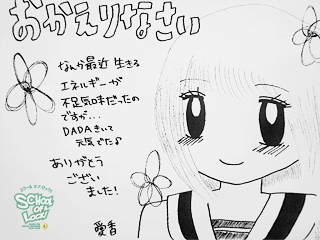 おかえりなさい
なんか最近 生きる
エネルギーが
不足気味だったの
ですが...
DADAきいて
元気でた♪
ありがとう
ござい
ました!
愛香
SCHOOL
OF
LOCK!